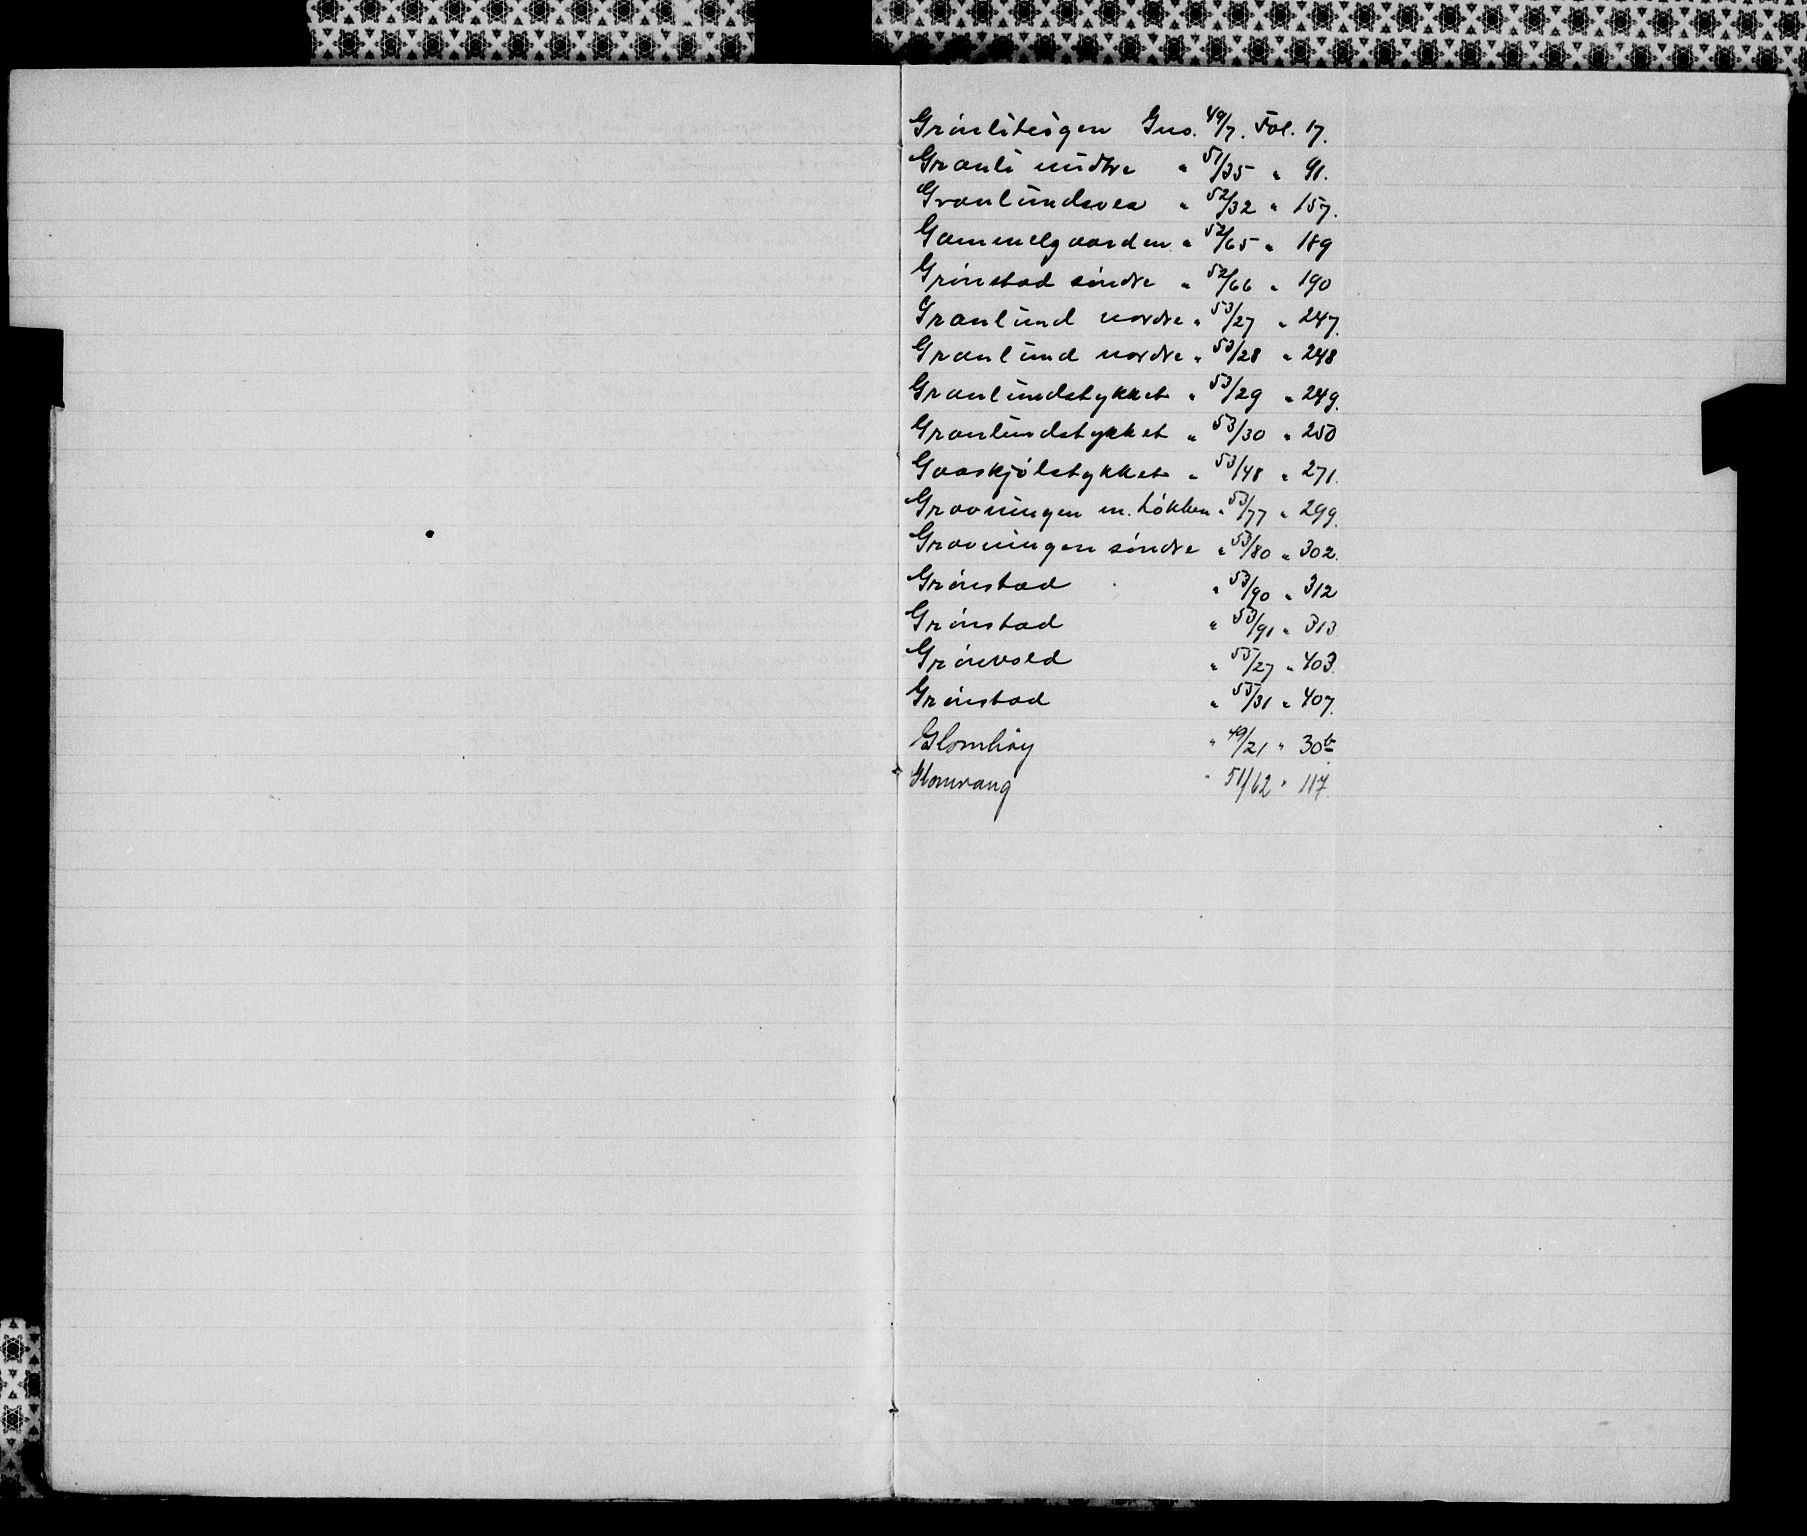 Grønlibeigen Gno. 49/7. Fol. 17.
Granli midtre " 51/35 " 91.
Granlundsvea " 52/32 " 157.
Gammelgaarden " 52/65 " 189
Grønstad søndre " 52/66 " 190
Granlund nordre " 53/27 " 247.
Granlund nordre " 53/28 " 248
Granlundstykket " 53/29 " 249.
Granlundstykket " 53/30 " 250
Gaaskjølstykket " 53/48 " 271.
Gravningen m. Løkken " 53/77 " 299.
Gravningen søndre " 53/80 " 302.
Grønstad " 53/90 " 312
Grønstad " 53/91 " 313
Grønvold " 55/27 " 403.
Grønstad " 55/31 " 407.
Glomhøy " 49/21 " 30b
Glomvang " 51/62 " 117.